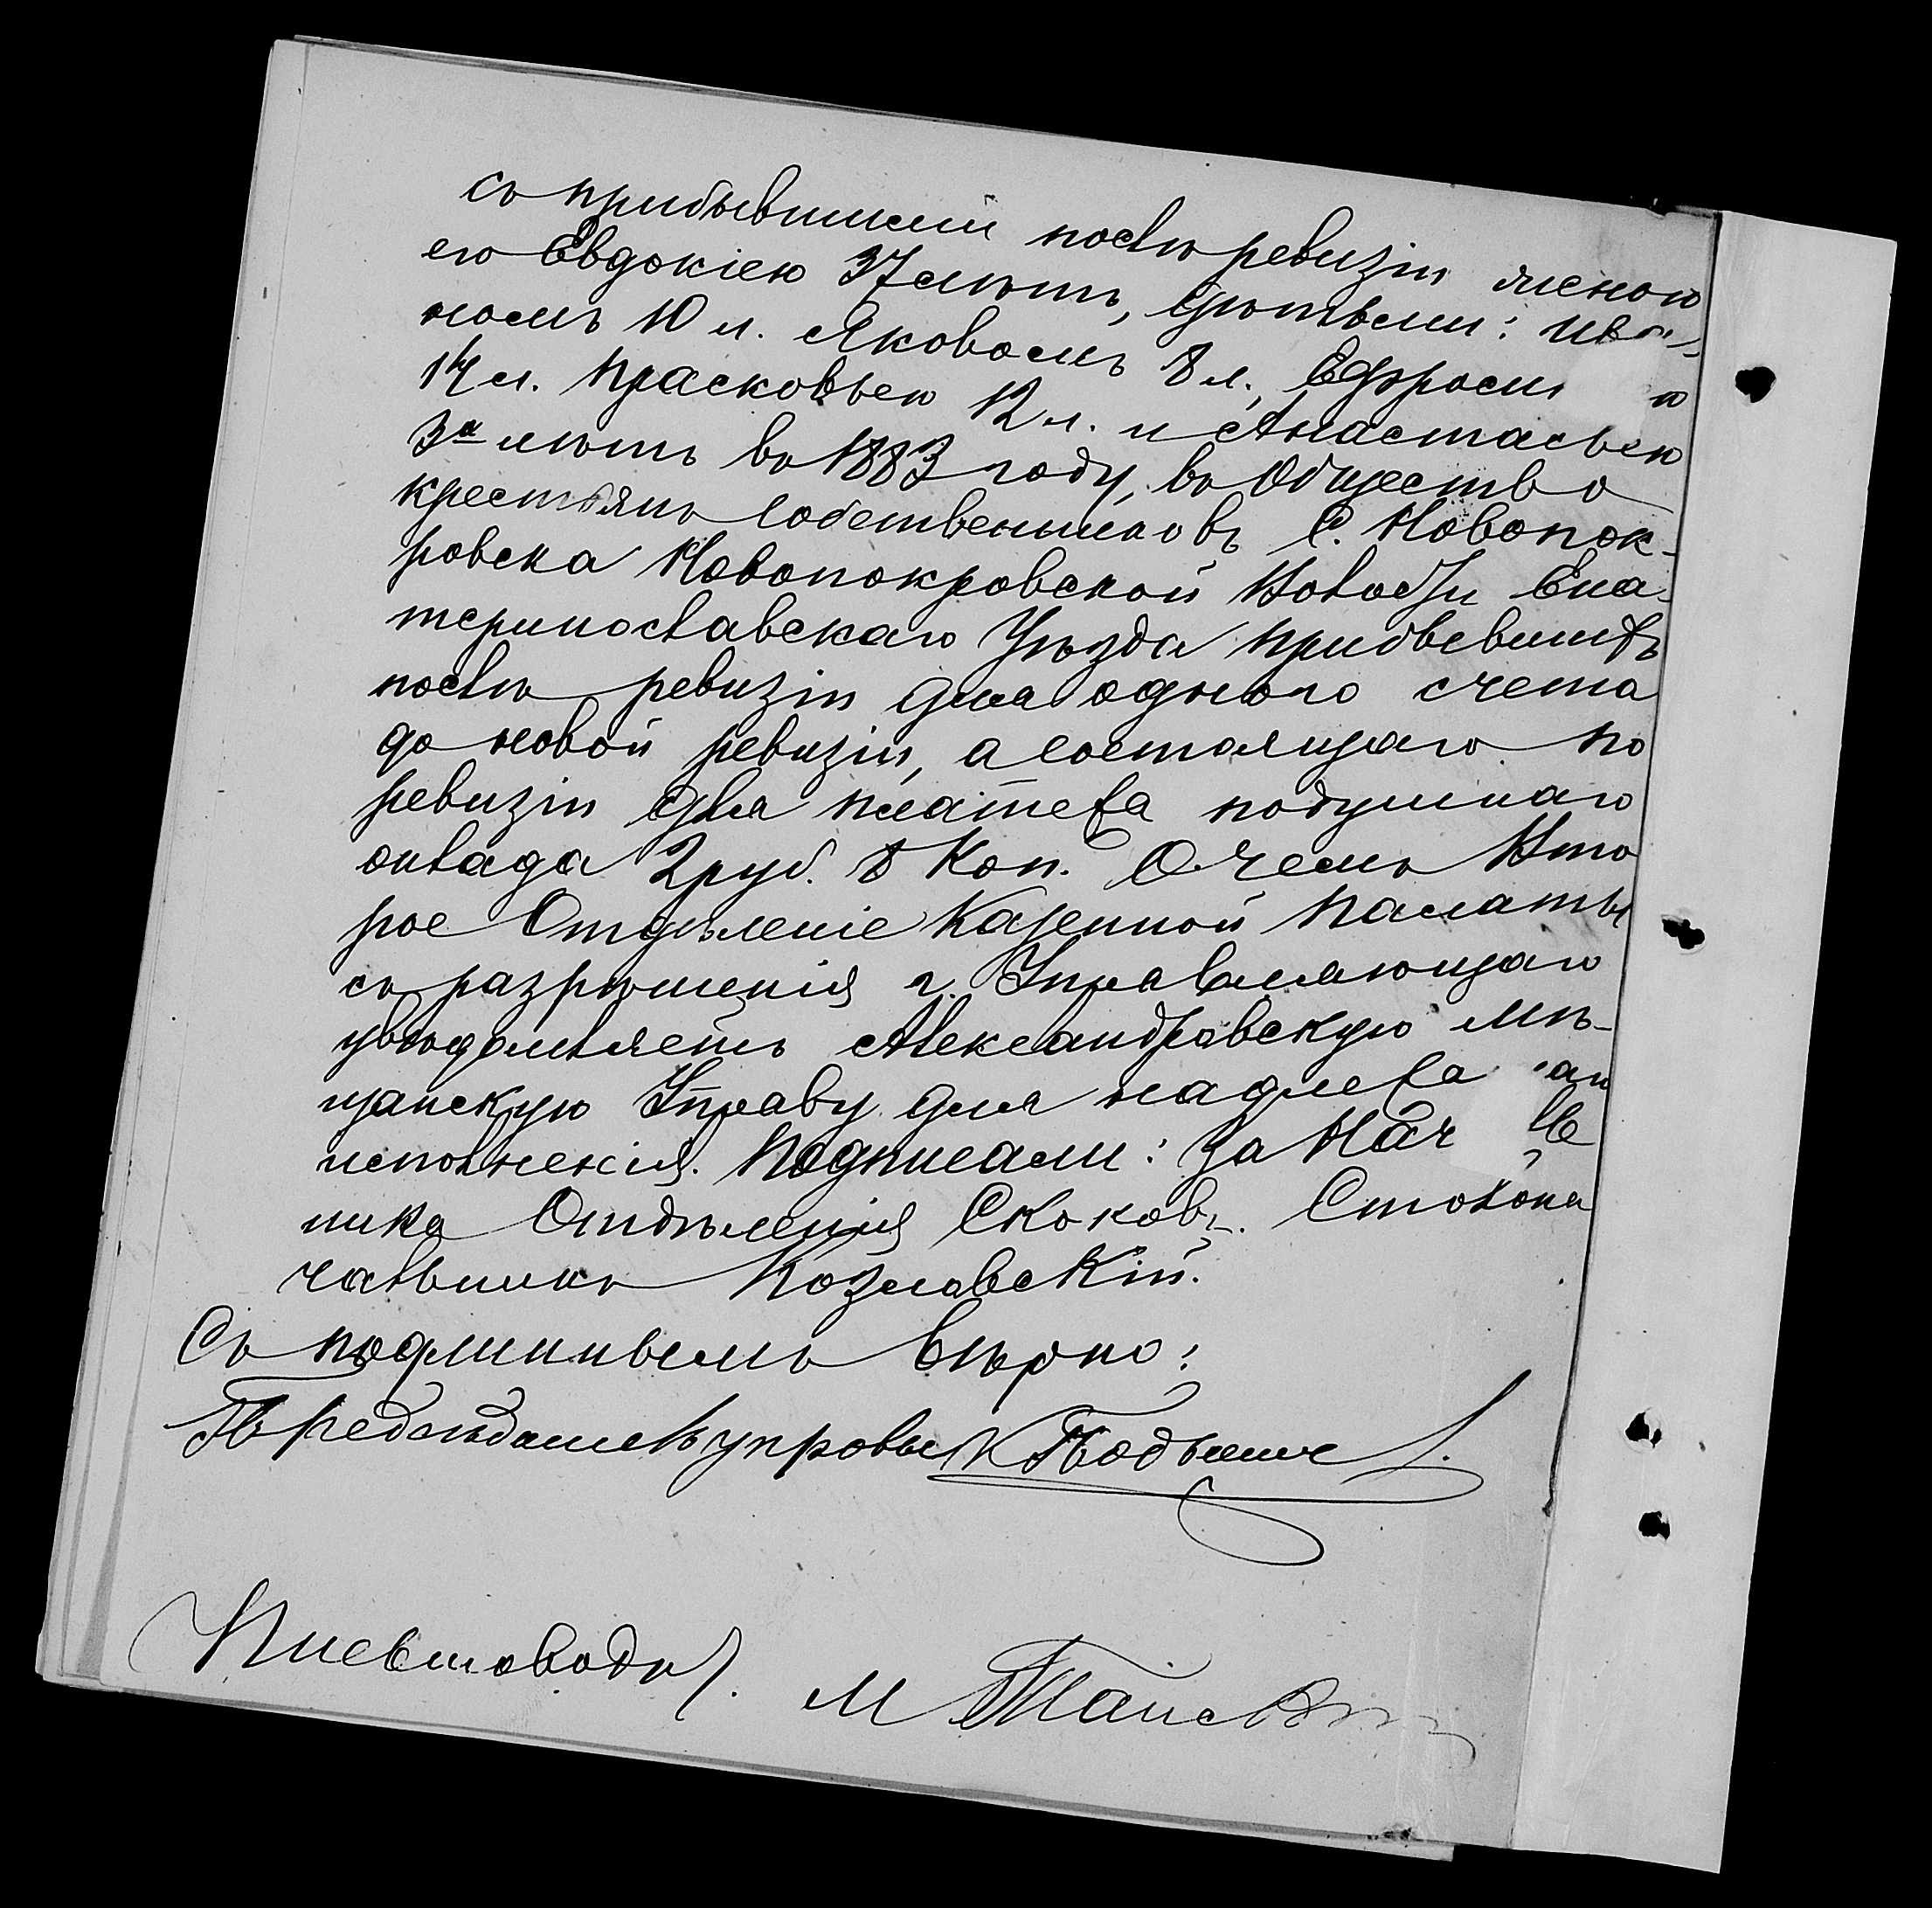 съ прибывшими послѣ ревизіи женою
его Евдокіею 37 лѣтъ, дѣтьми: Ива-
номъ 10 л. Яковомъ 8 л., Ефроси ю
14 л. Прасковьею 12 л. и Анастасьею
3х лѣтъ въ 1883 году, въ Общество
крестьянъ собственниковъ С. Новопок-
ровска Новопокровской Волости Ека-
теринославскаго Уѣзда прибывшихъ
послѣ ревизіи для одного счета
до новой ревизіи, а состоящаго по
ревизіи для платежа подушнаго
оклада 2 руб. 8 Коп. О чемъ Вто
рое Отдѣленіе Казенной Палаты
съ разрѣшенія г. Управляющаго
увѣдомляетъ Александровскую Мѣ-
щанскую Управу для надлежа аго
исполненія. Подписали: За Нач ль
ника Отдѣленія Скоковъ. Столона
чальникъ Козловскій.
Съ подлиннымъ вѣрно:
Председатель управы К
Письмоводи. М